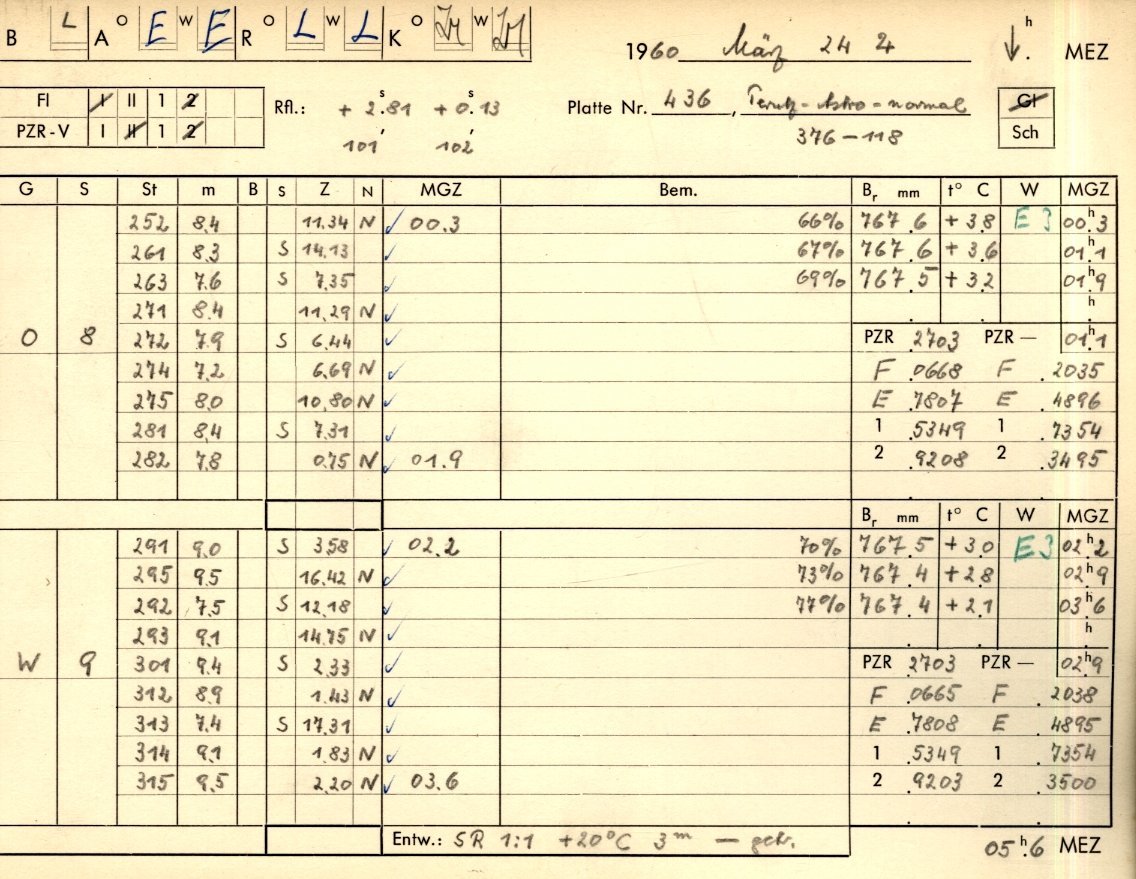 B L A O E W E R O L W L K O W
1960 März 24 h . MEZ
Fl I II 1 2 Rfl.: + 2.81 s + 0.13 s Platte Nr. 436, Perutz-Astro-normal Gl
PZR-V I II 1 2 101' 102' 376-118 Sch
G S St m B S Z N MGZ Bem. Br mm t° C W MGZ
252 8.4 11.34 N ✓ 00.3 66% 767.6 +3.8 E 3 00h.3
261 8.3 S 14.13 ✓ 67% 767.6 +3.6 01h.1
263 7.6 S 7.35 ✓ 69% 767.5 +3.2 01h.9
271 8.4 11.29 N ✓ . . h
O 8 272 7.9 S 6.44 ✓ PZR 2703 PZR— 01h.1
274 7.2 6.69 N ✓ F .0668 F .2035
275 8.0 10.80 N ✓ E .7807 E .4896
281 8.4 S 7.31 ✓ 1 .5349 1 .7354
282 7.8 0.75 N ✓ 01.9 2 .9208 2 .3495
Br mm t° C W MGZ
291 9.0 S 3.58 ✓ 02.2 70% 767.5 +3.0 E3 02h.2
295 9.5 16.42 N ✓ 73% 767.4 +2.8 02h.9
292 7.5 S 12.18 ✓ 77% 767.4 +2.1 03h.6
293 9.1 14.75 N ✓ . . h
W 9 301 9.4 S 2.33 ✓ PZR 2703 PZR— 02h.9
312 8.9 1.43 N ✓ F .0665 F .2038
313 7.4 S 17.31 ✓ E .7808 E .4895
314 9.1 1.83 N ✓ 1 .5349 1 .7354
315 9.5 2.20 N ✓ 03.6 2 .9203 2 .3500
Entw.: SR 1:1 +20°C 3m — 05h.6 MEZ